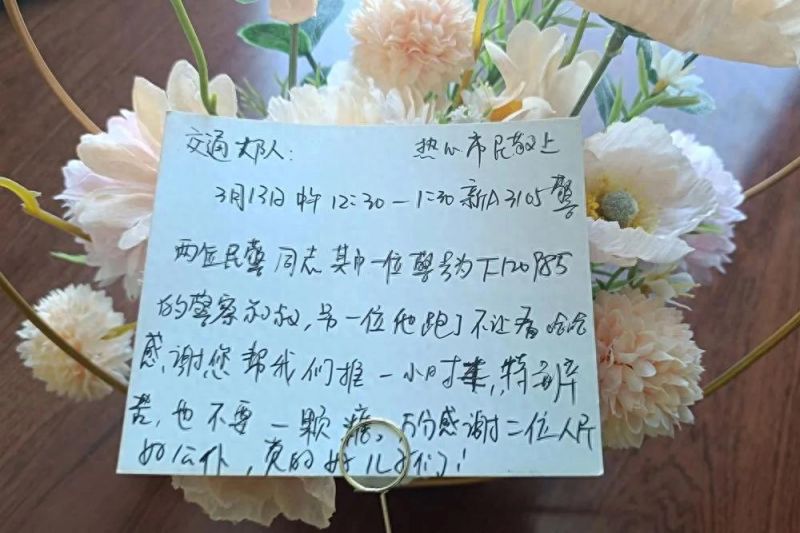 交通大队: 热心市民敬上
3月13日中午12:30—1:30新A3105警
两位民警同志其中一位警号为
的警察叔叔,另一位他跑了不让看哈哈
感谢您帮我们推一小时车,特辛
苦,也不要一颗糖。万分感谢二位人民
好公仆,真的好儿子们!